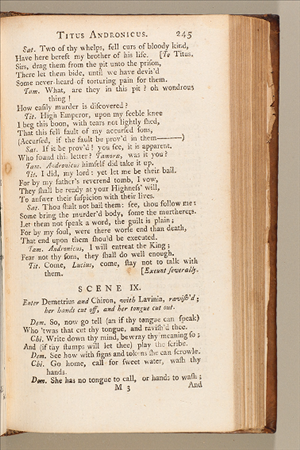 TITUS ANDRONICUS. 245
Sat. Two of thy whelps, fell curs of bloody kind,
Have here bereft my brother of his life. [To Titus.
Sirs, drag them from the pit unto the prison,
There let them bide, until we have devis'd
Some never heard of torturing pain for them.
Tam. What, are they in this pit? oh wondrous
thing!
How easily murder is discovered?
Tit. High Emperor, upon my feeble knee
I beg this boon, with tears not lightly shed,
That this fell fault of my accursed sons,
(Accursed, if the fault be prov'd in them———)
Sat. If it be prov'd? you see, it is apparent.
Who found this letter? Tamora, was it you?
Tam. Andronicus himself did take it up.
Tit. I did, my lord: yet let me be their bail.
For by my father's reverend tomb, I vow,
They shall be ready at your Highness' will,
To answer their suspicion with their lives.
Sat. Thou shalt not bail them: see, thou follow me:
Some bring the murder'd body, some the murtherers.
Let them not speak a word, the guilt is plain;
For by my soul, were there worse end than death,
That end upon them should be executed.
Tam. Andronicus, I will entreat the King;
Fear not thy sons, they shall do well enough.
Tit. Come, Lucius, come, stay not to talk with
them. [Exeunt severally.
SCENE IX.
Enter Demetrius and Chiron, with Lavinia, ravish'd;
her hands cut off, and her tongue cut out.
Dem. So, now go tell (an if thy tongue can speak)
Who 'twas that cut thy tongue, and ravish'd thee.
Chi. Write down thy mind, bewray thy meaning so;
And (if thy stumps will let thee) play the scribe.
Dem. See how with signs and tokens she can scrowle.
Chi. Go home, call for sweet water, wash thy
hands.
Dem. She has no tongue to call, or hands to wash;
M 3 And